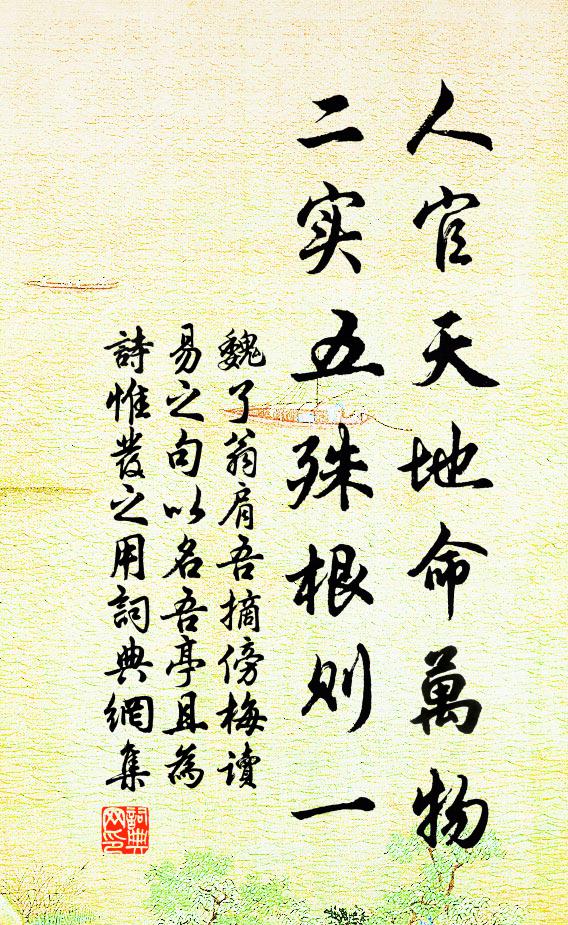 人官天地命萬物
二实五殊根則一
魏了翁肩吾摘傍梅讀
易之句以名吾亭且為
詩惟發之用詞典網集
詞典網印